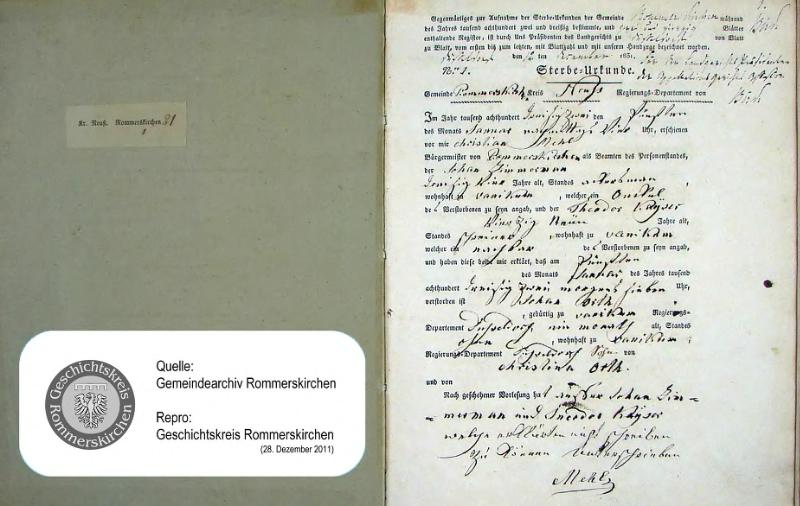 Kr. Neuß. Rommerskirchen 31
1
Quelle:
Gemeindearchiv Rommerskirchen
Repro:
Geschichtskreis Rommerskirchen
(28. Dezember 2011)
Geschichtskreis
Rommerskirchen
Gegenwärtiges zur Aufnahme der Sterbe-Urkunden der Gemeinde Rommerskirchen während
des Jahres tausend achthundert zwei und dreißig bestimmte, und Blätter
enthaltende Register, ist durch Uns Präsidenten des Landgerichts zu Düsseldorf von Blatt
zu Blatt, vom ersten bis zum letzten, mit Blattzahl und mit unserm Handzug bezeichnet worden.
Düsseldorf den December 1831.
Nro 1. Sterbe-Urkunde.
Gemeinde Rommerskirchen Kreis Neuß Regierungs-Departement von
Im Jahr tausend achthundert dreisig zwei den Fünften
des Monats Januar nachmittags vier Uhr, erschienen
vor mir Christian Mehl
Bürgermeister von Rommerskirchen als Beamten des Personenstandes,
der Johan Zimmerman
dreisig vier Jahre alt, Standes ackersman
wohnhaft zu vanikum, welcher ein Onckel
des Verstorbenen zu seyn angab, und der Theodor Kayser
vierzig neun Jahre alt,
Standes schreiner, wohnhaft zu vanikum
welcher ein nachbar des Verstorbenen zu seyn angab,
und haben diese beide mir erklärt, daß am Fünften
des Monats Januar des Jahres tausend
achthundert dreisig zwei morgens sieben Uhr,
verstorben ist Johan Orth
, gebürtig zu vanikum Regierungs-
Departement Düsseldorf ein monath alt, Standes
ohne, wohnhaft zu vanikum
Regierungs-Departement Düsseldorf Sohn von
Christina Orth
und von
Nach geschehener Vorlesung hat außer Johan Zim-
merman und Theodor Kayser
welche erklärten nicht schreiben
zu können unterschrieben
Mehl